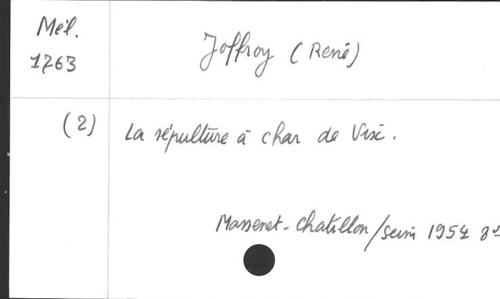 Mél. Joffroy (René)
1763
(2) La sépulture à char de Vix.
Massenet-Chatillon/Seine 1954 8°